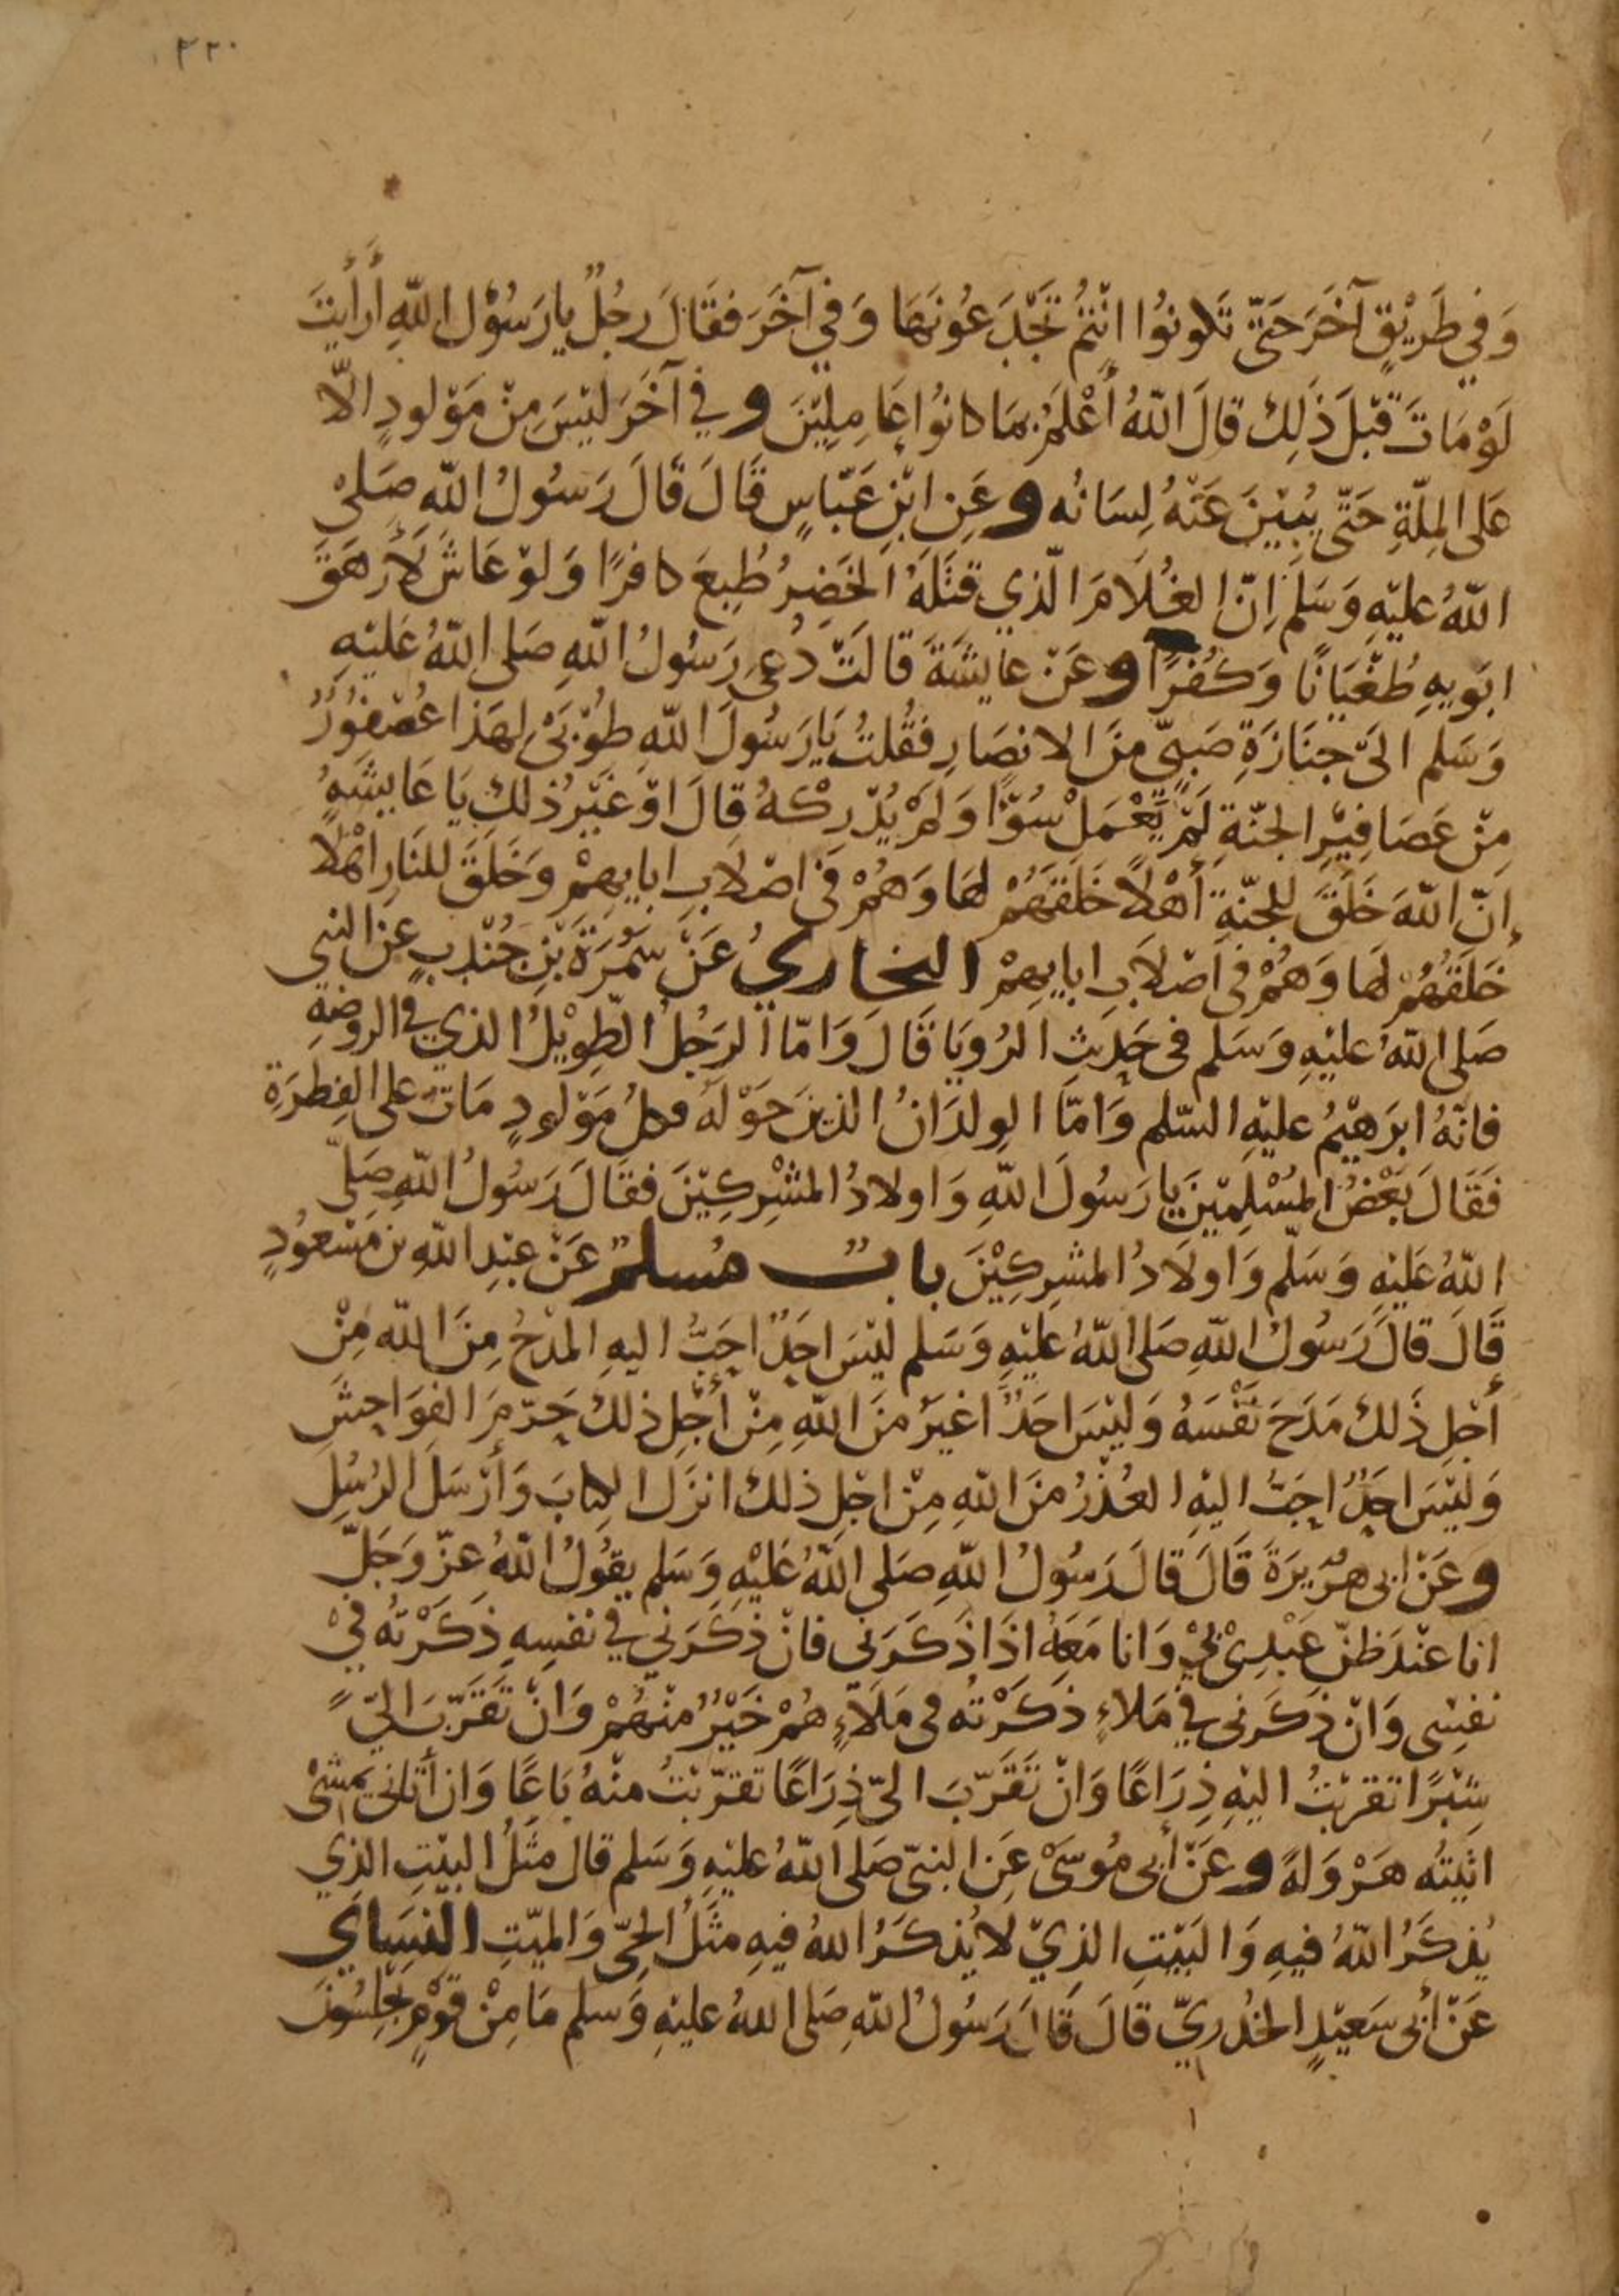 ٢٢٠
وَفِي طَرِيْقٍ آخَرَ حَتّى تَكونوُا انْتُمْ تَجْدَعُونَهَا وَفي آخَرَ فقَالَ رجُلٌ يا رَسُوْل اللّهِ أَرأَيْتَ
لَوْ مَاتَ قَبْلَ ذَلِكَ قالَ اللّهُ أَعْلَمُ بمَا كانوُا عَامِلِيْنَ وفي آخَرَ ليْسَ مِنْ مَوْلودٍ الّا
عَلى المِلّةِ حَتّى يُبِيْنَ عَنْهُ لِسَانُه وعَنِ ابْنِ عَبّاسٍ قَالَ قَالَ رَسُولُ اللّه صَلى
اللّهُ عليْهِ وَسَلم اِنّ الغُلَامَ الّذي قتَلَهُ الخَضِرُ طُبِعَ كافرًا وَلوْ عَاشَ لَأَرهَقَ
ابَويهِ طُغْيَانًا وَكُفْرًا وعَنْ عايشَةَ قالَتْ دُعِى رَسُولُ اللّهِ صَلى اللّهُ عَليْهِ
وَسَلم الىَ جنَازَةِ صَبِيٍّ منَ الانصَارِ فقُلتُ يَا رَسُولَ اللّهِ طوُبَى لِهَذا عُصْفُوُرٌ
مِنْ عَصَافِيْرِ الجنّةِ لَمْ يَعْمَلْ سُوْاً وَلمْ يُدْرِكْهُ قالَ اوْ غَيْرُ ذلك يَا عَايِشَهُ
اِنّ اللّهَ خَلَقَ للجنّةِ أَهْلاً خَلَقَهُمْ لهَا وَهُمْ في اصْلَابِ ابايِهمْ وَخَلَقَ للنَارِ اهْلا
خَلَقَهُمْ لهَا وَهُمْ في اَصْلاَبِ ابايِهِمْ البخاريُ عَنْ سَمُرَةَ بْنِ جُنْدبٍ عن النبي
صَلى اللّهُ عليْهِ وَسَلم في حَديثِ الرُويَا قَالَ وَامّا الرَجُلُ الطّوِيْلُ الذي في الروضَهِ
فانّهُ ابرَهيْمُ عليْهِ السّلم وَامّا الوِلدَانُ الذينَ حَوْلهُ فكلُ مَوْلودٍ مَاتَ على الفِطرَةِ
فَقَالَ بَعْضُ المُسْلِمِيْنَ يا رَسُولَ اللّهِ وَاولادُ المشْرِكِيْنَ فقَالَ رَسُولُ اللّهِ صَلّى
اللّهُ عَليْهِ وَسَلّم وَاولَادُ المشرِكِيْنَ بابٌ مُسلمٌ عَنْ عبْدِ اللّهِ بن مَسْعوُدٍ
قَالَ قالَ رَسُولُ اللّهِ صَلى اللّهُ عليْهِ وَسَلم ليْسَ احَدٌ احَبَّ اليهِ المدْحُ مِنَ اللّه مِنْ
أَجْلِ ذَلك مَدَحَ نَفْسَهُ وَليْسَ احَدٌ اغيَرُ منَ اللّهِ مِنْ أَجْلِ ذلكَ حَرّمَ الفوَاحِشَ
وَليْسَ احَدٌ احَبَّ اليْهِ العُذْرُ منَ اللّهِ مِنْ اجْلِ ذلك انزَل الكِتابَ وَأَرْسَلَ الرُسُلِ
وعَنْ ابى هرُيرَةَ قَالَ قالَ رَسُولُ اللّهِ صَلى اللّهُ عَليْهِ وَسَلم يقوُلُ اللّهُ عزّ وَجَلّ
انا عنْدَ ظنّ عَبْدِى بيْ وَانا مَعَهُ اذَا ذَكَرَنى فانْ ذكَرَني في نفسِهِ ذَكَرْتُه فيْ
نفسِى وَانْ ذكَرَنى في مَلاءٍ ذكَرْتُه في مَلَاءٍ هُمْ خَيْرٌ منْهُمْ وَانْ تَقَرّبَ اليّ
شِبْرًا تقربْتُ اليْهِ ذِرَاعًا وَانْ تَقَرّبَ اليّ ذِرَاعًا تقرّبْتُ منْهُ بَاعًا وَان أَتَاني يمشىْ
اتيْتُه هَرْوَلهً وعَنْ أبى مُوسَىْ عَنِ النبىّ صَلى اللّهُ عليْهِ وَسَلم قال مثَلُ البيْتِ الذِي
يُذكَرُ اللّهُ فيهِ وَالبَيْتِ الذِيْ لا يُذكَرُ اللهُ فيهِ مثَلُ الحىّ وَالميّتِ النسَايي
عَنْ أبى سَعيْدٍ الخُدْرِيّ قالَ قَالَ رَسُولُ اللّهِ صَلى اللهُ عليْهِ وَسلم مَا مِنْ قوْمٍ يجْلِسُونَ